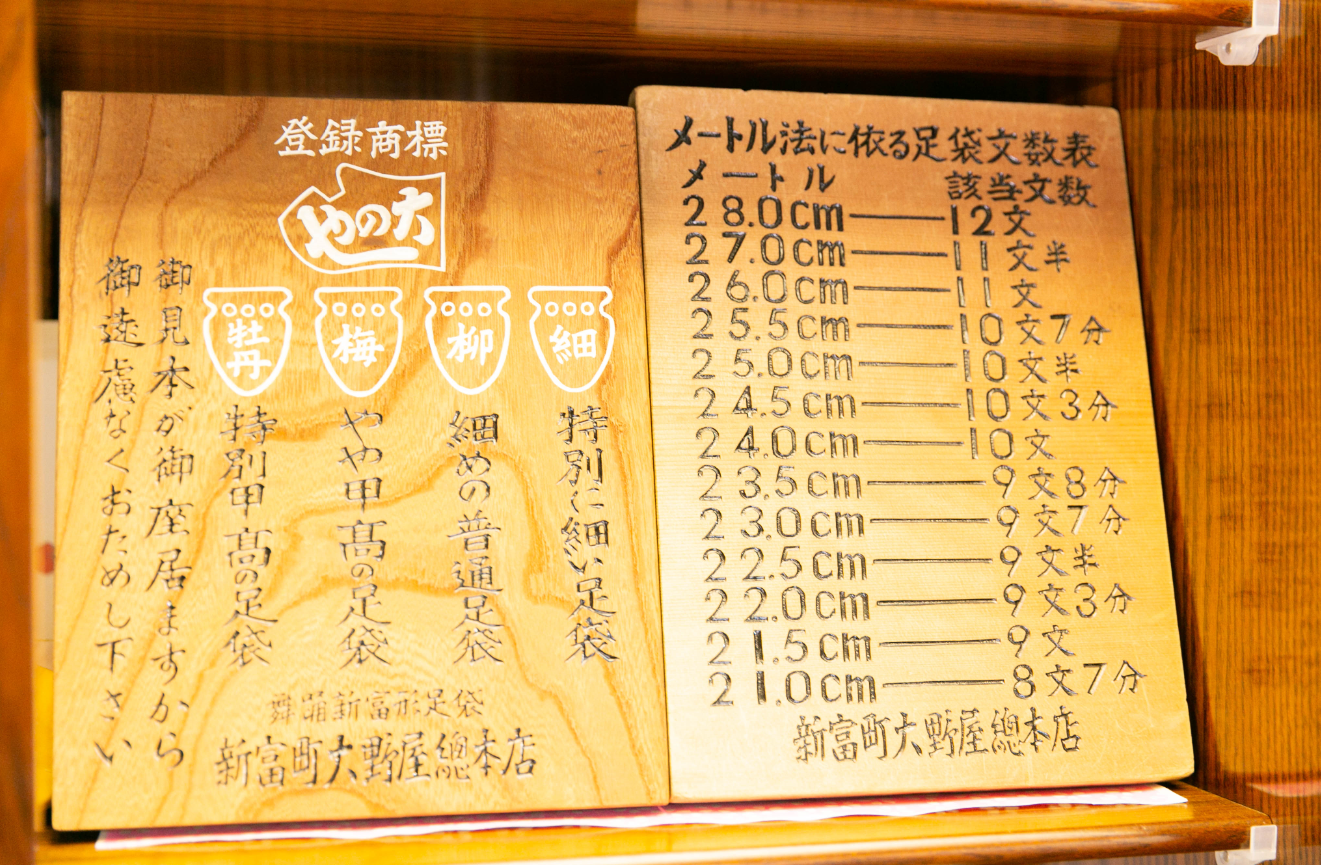 登録商標
大野や
細
特別に細い足袋
柳
細めの普通足袋
梅
やや甲髙の足袋
牡丹
特別甲髙の足袋
御見本が御座居ますから
御遠慮なくおためし下さい
舞踊新富形足袋
新富町大野屋總本店
メートル法に依る足袋文数表
メートル 該当文数
28.0cm――12文
27.0cm――11文半
26.0cm――11文
25.5cm――10文7分
25.0cm――10文半
24.5cm――10文3分
24.0cm――10文
23.5cm――9文8分
23.0cm――9文7分
22.5cm――9文半
22.0cm――9文3分
21.5cm――9文
21.0cm――8文7分
新富町大野屋總本店